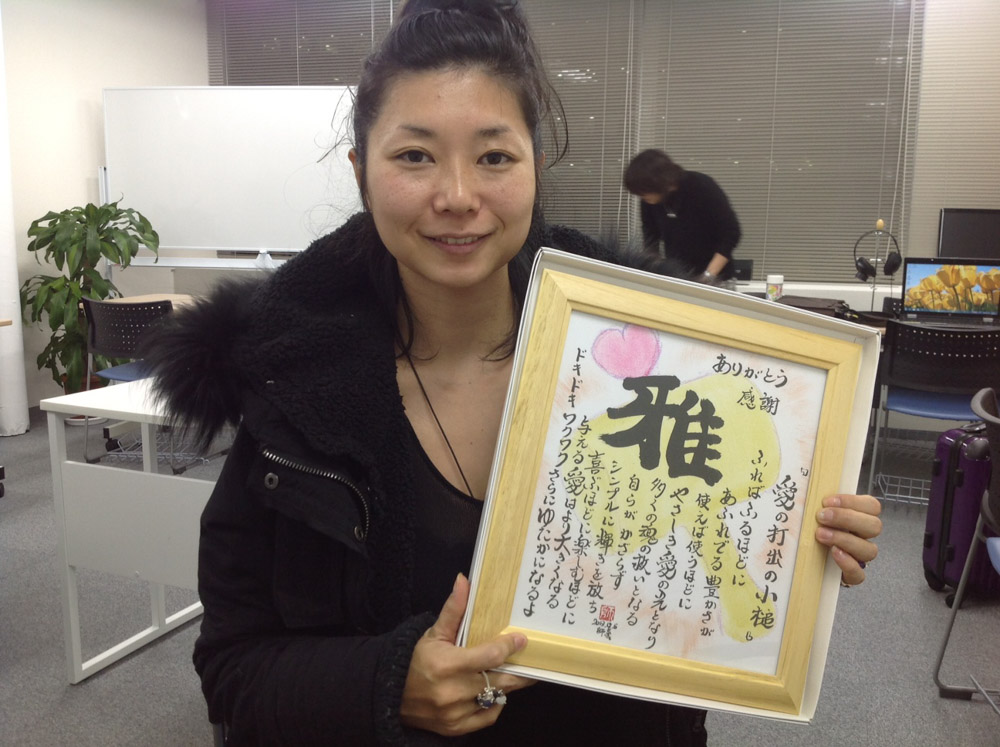 ありがとう
感謝
雅
〝愛の打出の小槌〟
ふればふるほどに
あふれでる豊かさが
使えば使うほどに
やさしき愛の光となり
多くの魂の救いとなる
自らがかざらず
シンプルに輝きを放ち
喜ぶほどに楽しむほどに
与える愛はより大きくなる
ドキドキワクワクさらにゆたかになるよ